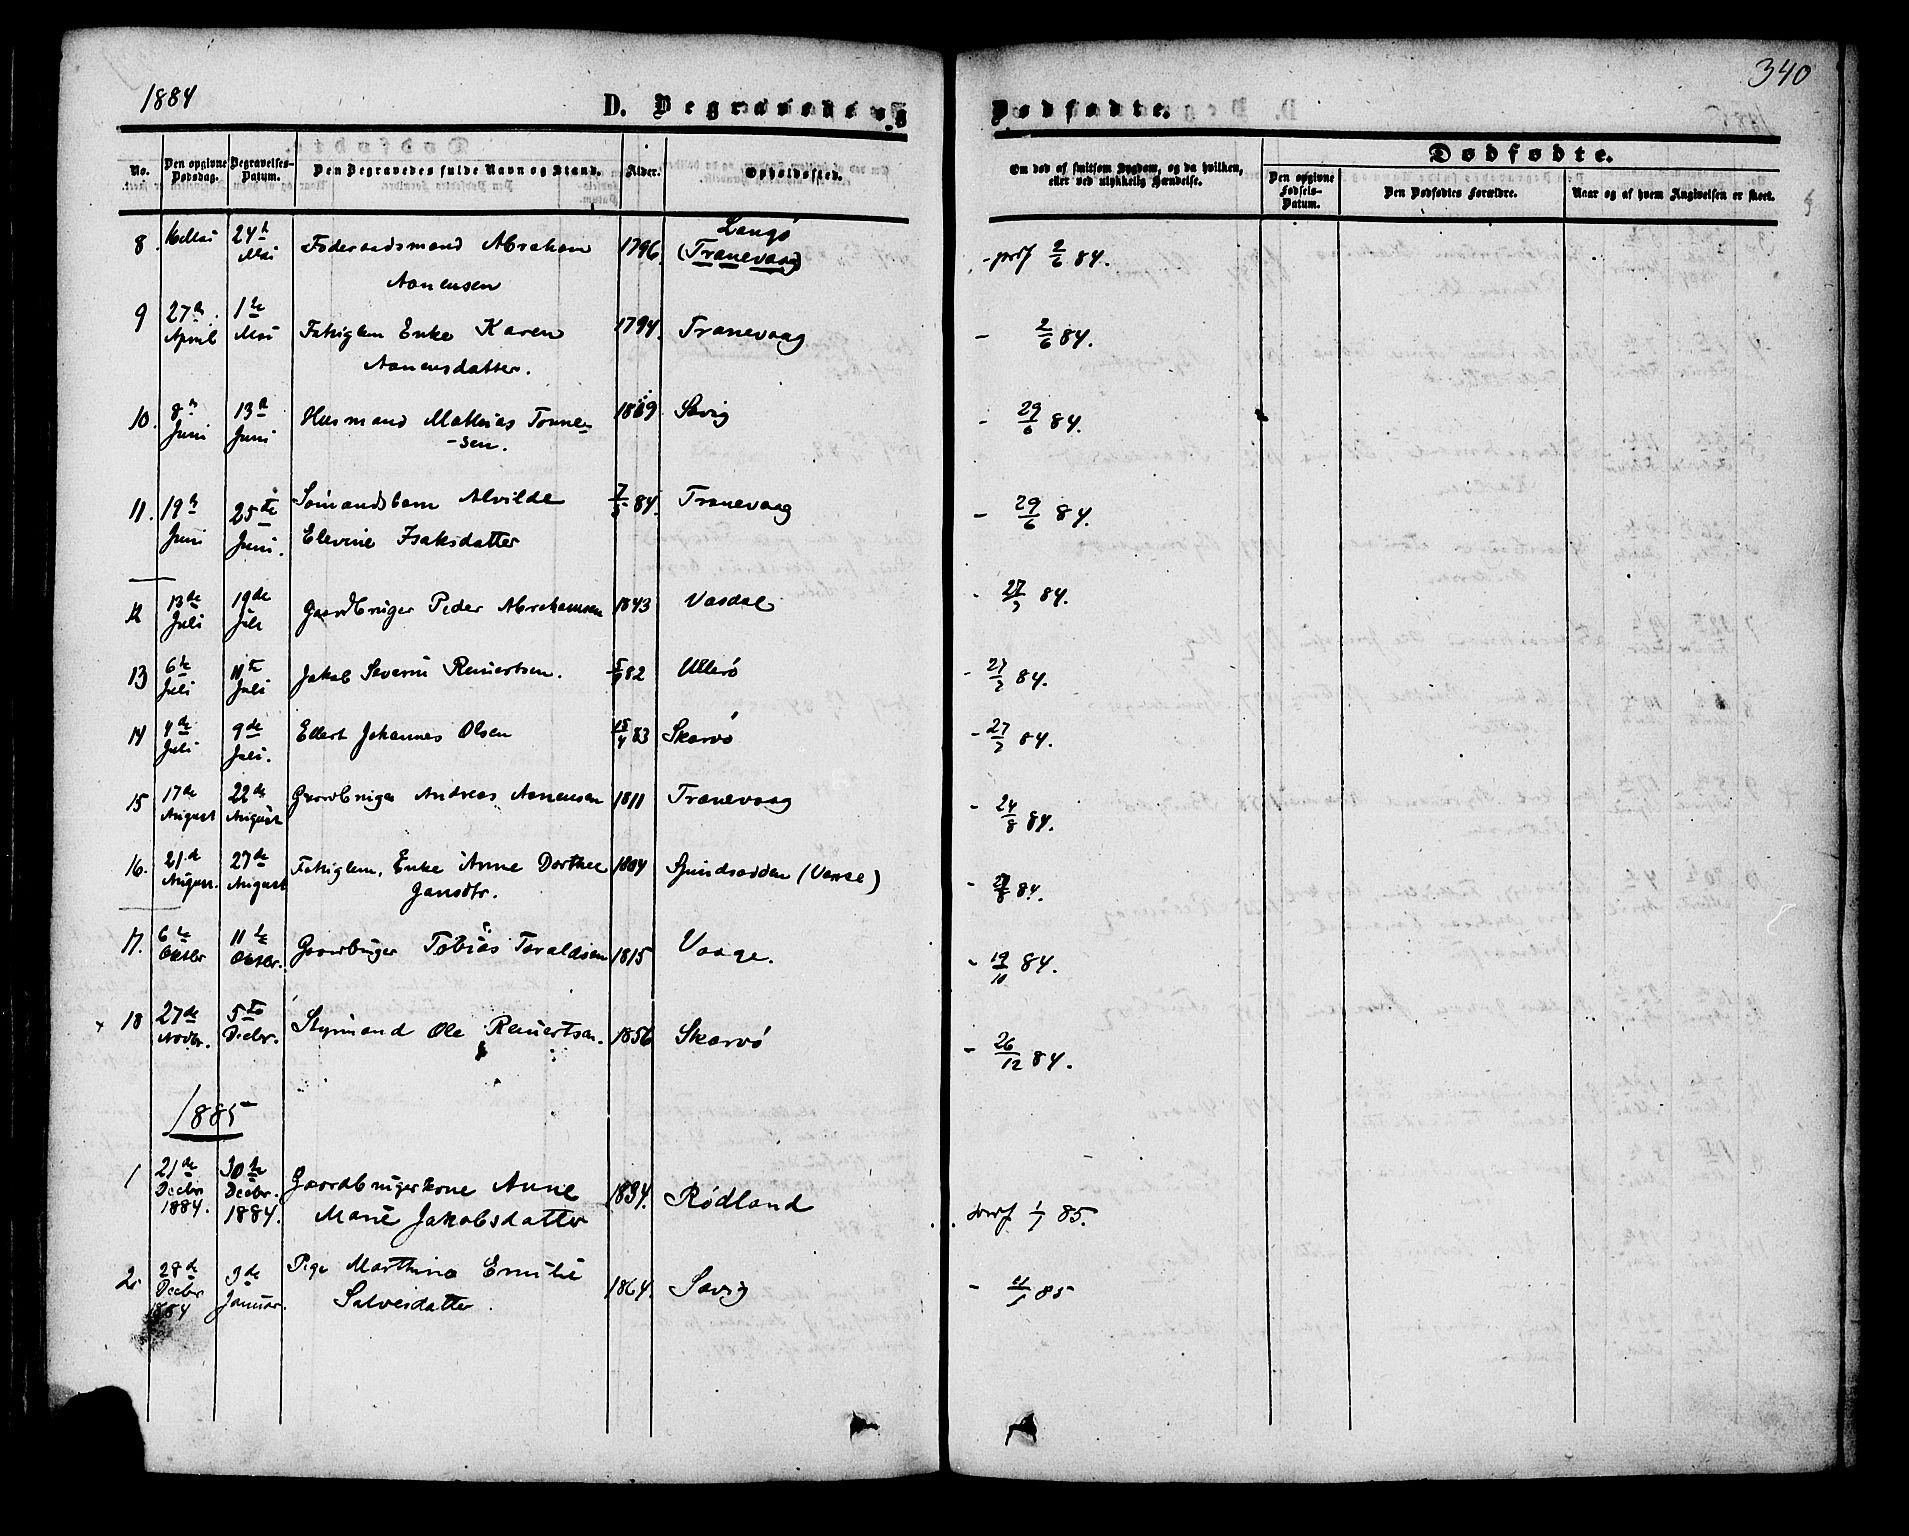 1884
340
D. Begravede og Dødfødte.
No. Den opgivne Dødsdag. Begravelses-Datum. Den Begravedes fulde Navn og Stand. Alder. Opholdssted. Om død af smitsom Sygdom, og da hvilken, eller ved ulykkelig Hændelse.
Dødfødte.
Den opgivne Fødsels-Datum. Den Dødfødtes Forældre. Naar og af hvem Angivelsen er skeet.
8. Mai 24de Mai Føderaadsmand Abraham Aanensen 1796. Langø (Tranevaag) 2/6 84.
9 27de April 1ste Mai Fattiglem Enke Karen Aanensdatter. 1794. Tranevaag - 2/6 84.
10. 8de Juni 13de Juni Husmand Mathias Tønnesen. Søvig - 29/6 84.
11. 19de Juni 25de Juni. Sømandsbarn Alvilde Elevine Isaksdatter 84. Tranevaag - 29/6 84.
12 13de Juli 19de Juli Gaardbruger Peder Abrahamsen 1843 Vasdal - 27/7 84.
13 6te Juli 11te Juli Jakob Severin Reinertsen. 82 Ullerø - 27/7 84.
14 4de Juli 9de Juli. Ellert Johannes Olsen 15/4 83 Skarvø - 27/7 84.
15 17de August 22de August Gaardbruger Andreas Aanensen 1811 Tranevaag - 24/8 84.
16. 21de August. 27de August Fattiglem, Enke Anne Dorthea Jansdtr. 1804 (Vanse) - 84.
17. 6te Oktbr 11te Oktbr. Gaardbruger Tobias Taraldsen 1815 Vaage. - 19/10 84.
18 27de Novbr. 5te Decbr. Styrmand Ole Reinertsen. 1856 Skarvø - 26/12 84.
1885
1 21de Decbr 1884. 30te Decbr. 1884. Gaardbrugerkone Anne Marie Jakobsdatter 1834. Rødland 1/1 85.
2. 28de Decbr 1884 3de Januar. Pige Marthine Emilie Salvesdatter. 1864. Søvig - 85